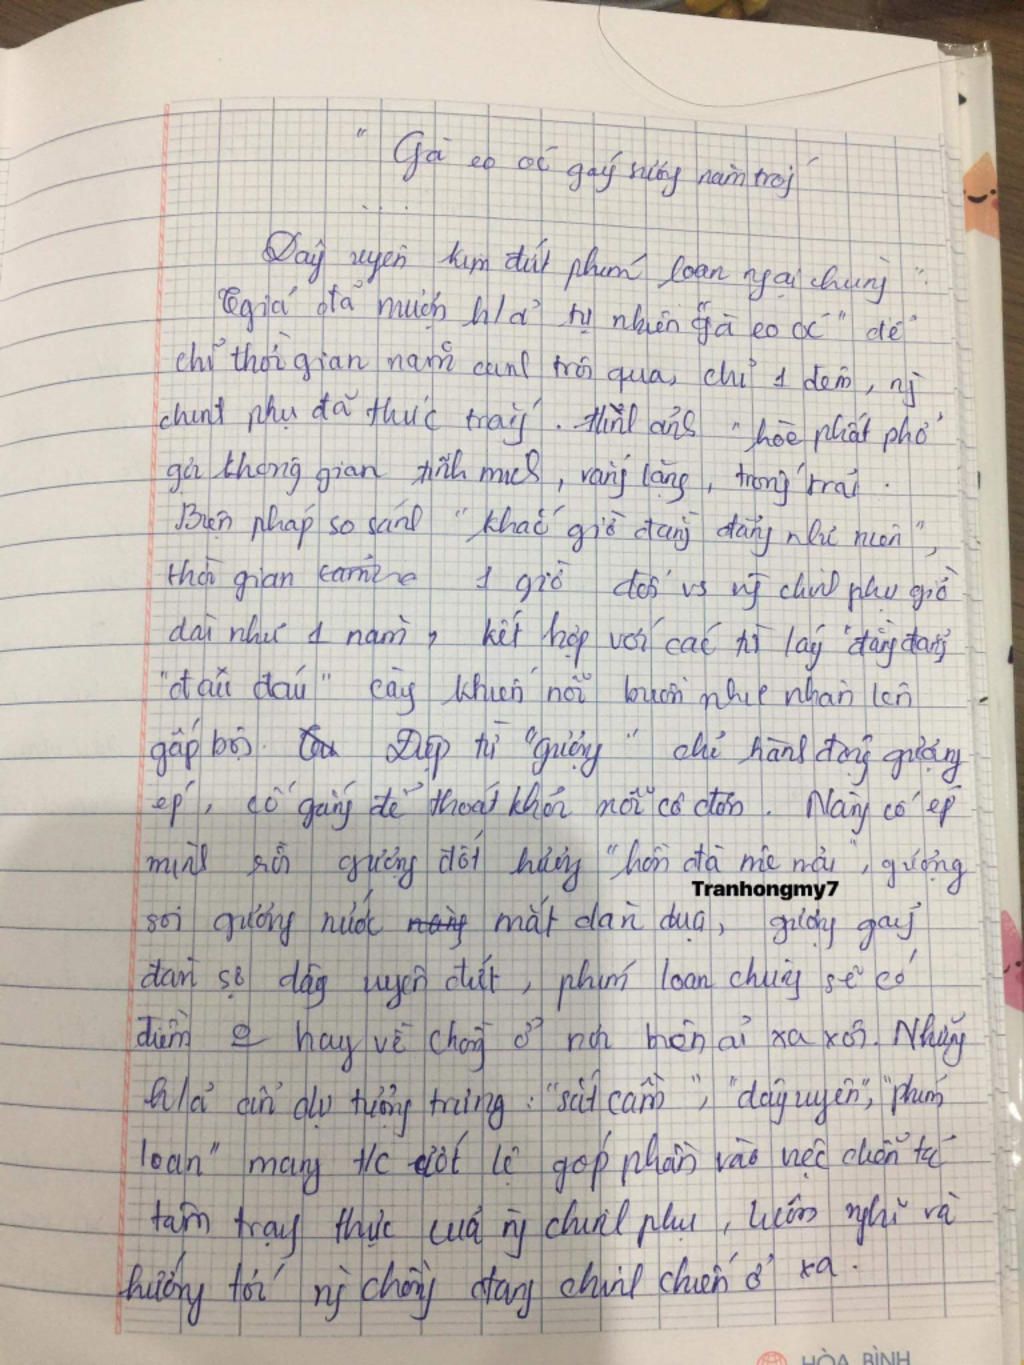 " Gà eo óc gáy sương năm trống
....
Dây uyên kinh đứt phím loan ngại chùng "
Tgiả đã mượn h/ả tự nhiên "gà eo óc" để
chỉ thời gian năm canh trôi qua, chỉ 1 đêm, ng
chinh phụ đã thức trắng. Hình ảnh "hòe phất phơ"
gợi không gian tĩnh mịch, vắng lặng, trống trải.
Biện pháp so sánh "khắc giờ đằng đẵng như niên",
thời gian 1 giờ đối vs ng chinh phụ giờ
dài như 1 năm, kết hợp với các từ láy "đằng đẵng"
"đau đáu" càng khiến nỗi buồn như nhân lên
gấp bội. Điệp từ "gượng" chỉ hành động gượng
ép, cố gắng để thoát khỏi nỗi cô đơn. Nàng cố ép
mình rồi gượng đốt hương "hồn đà mê mải", gượng
soi gương nước mắt dàn dụa, gượng gảy
đàn sợ dây uyên đứt, phím loan chùng sẽ có
điềm hay về chồng ở nơi biên ải xa xôi. Những
h/ả ẩn dụ tượng trưng: "sắt cầm", "dây uyên", "phím
loan" mang t/c ước lệ góp phần vào việc diễn tả
tâm trạng thực của ng chinh phụ, luôn nghĩ và
hướng tới ng chồng đang chinh chiến ở xa.
Tranhongmy7
HÒA BÌNH